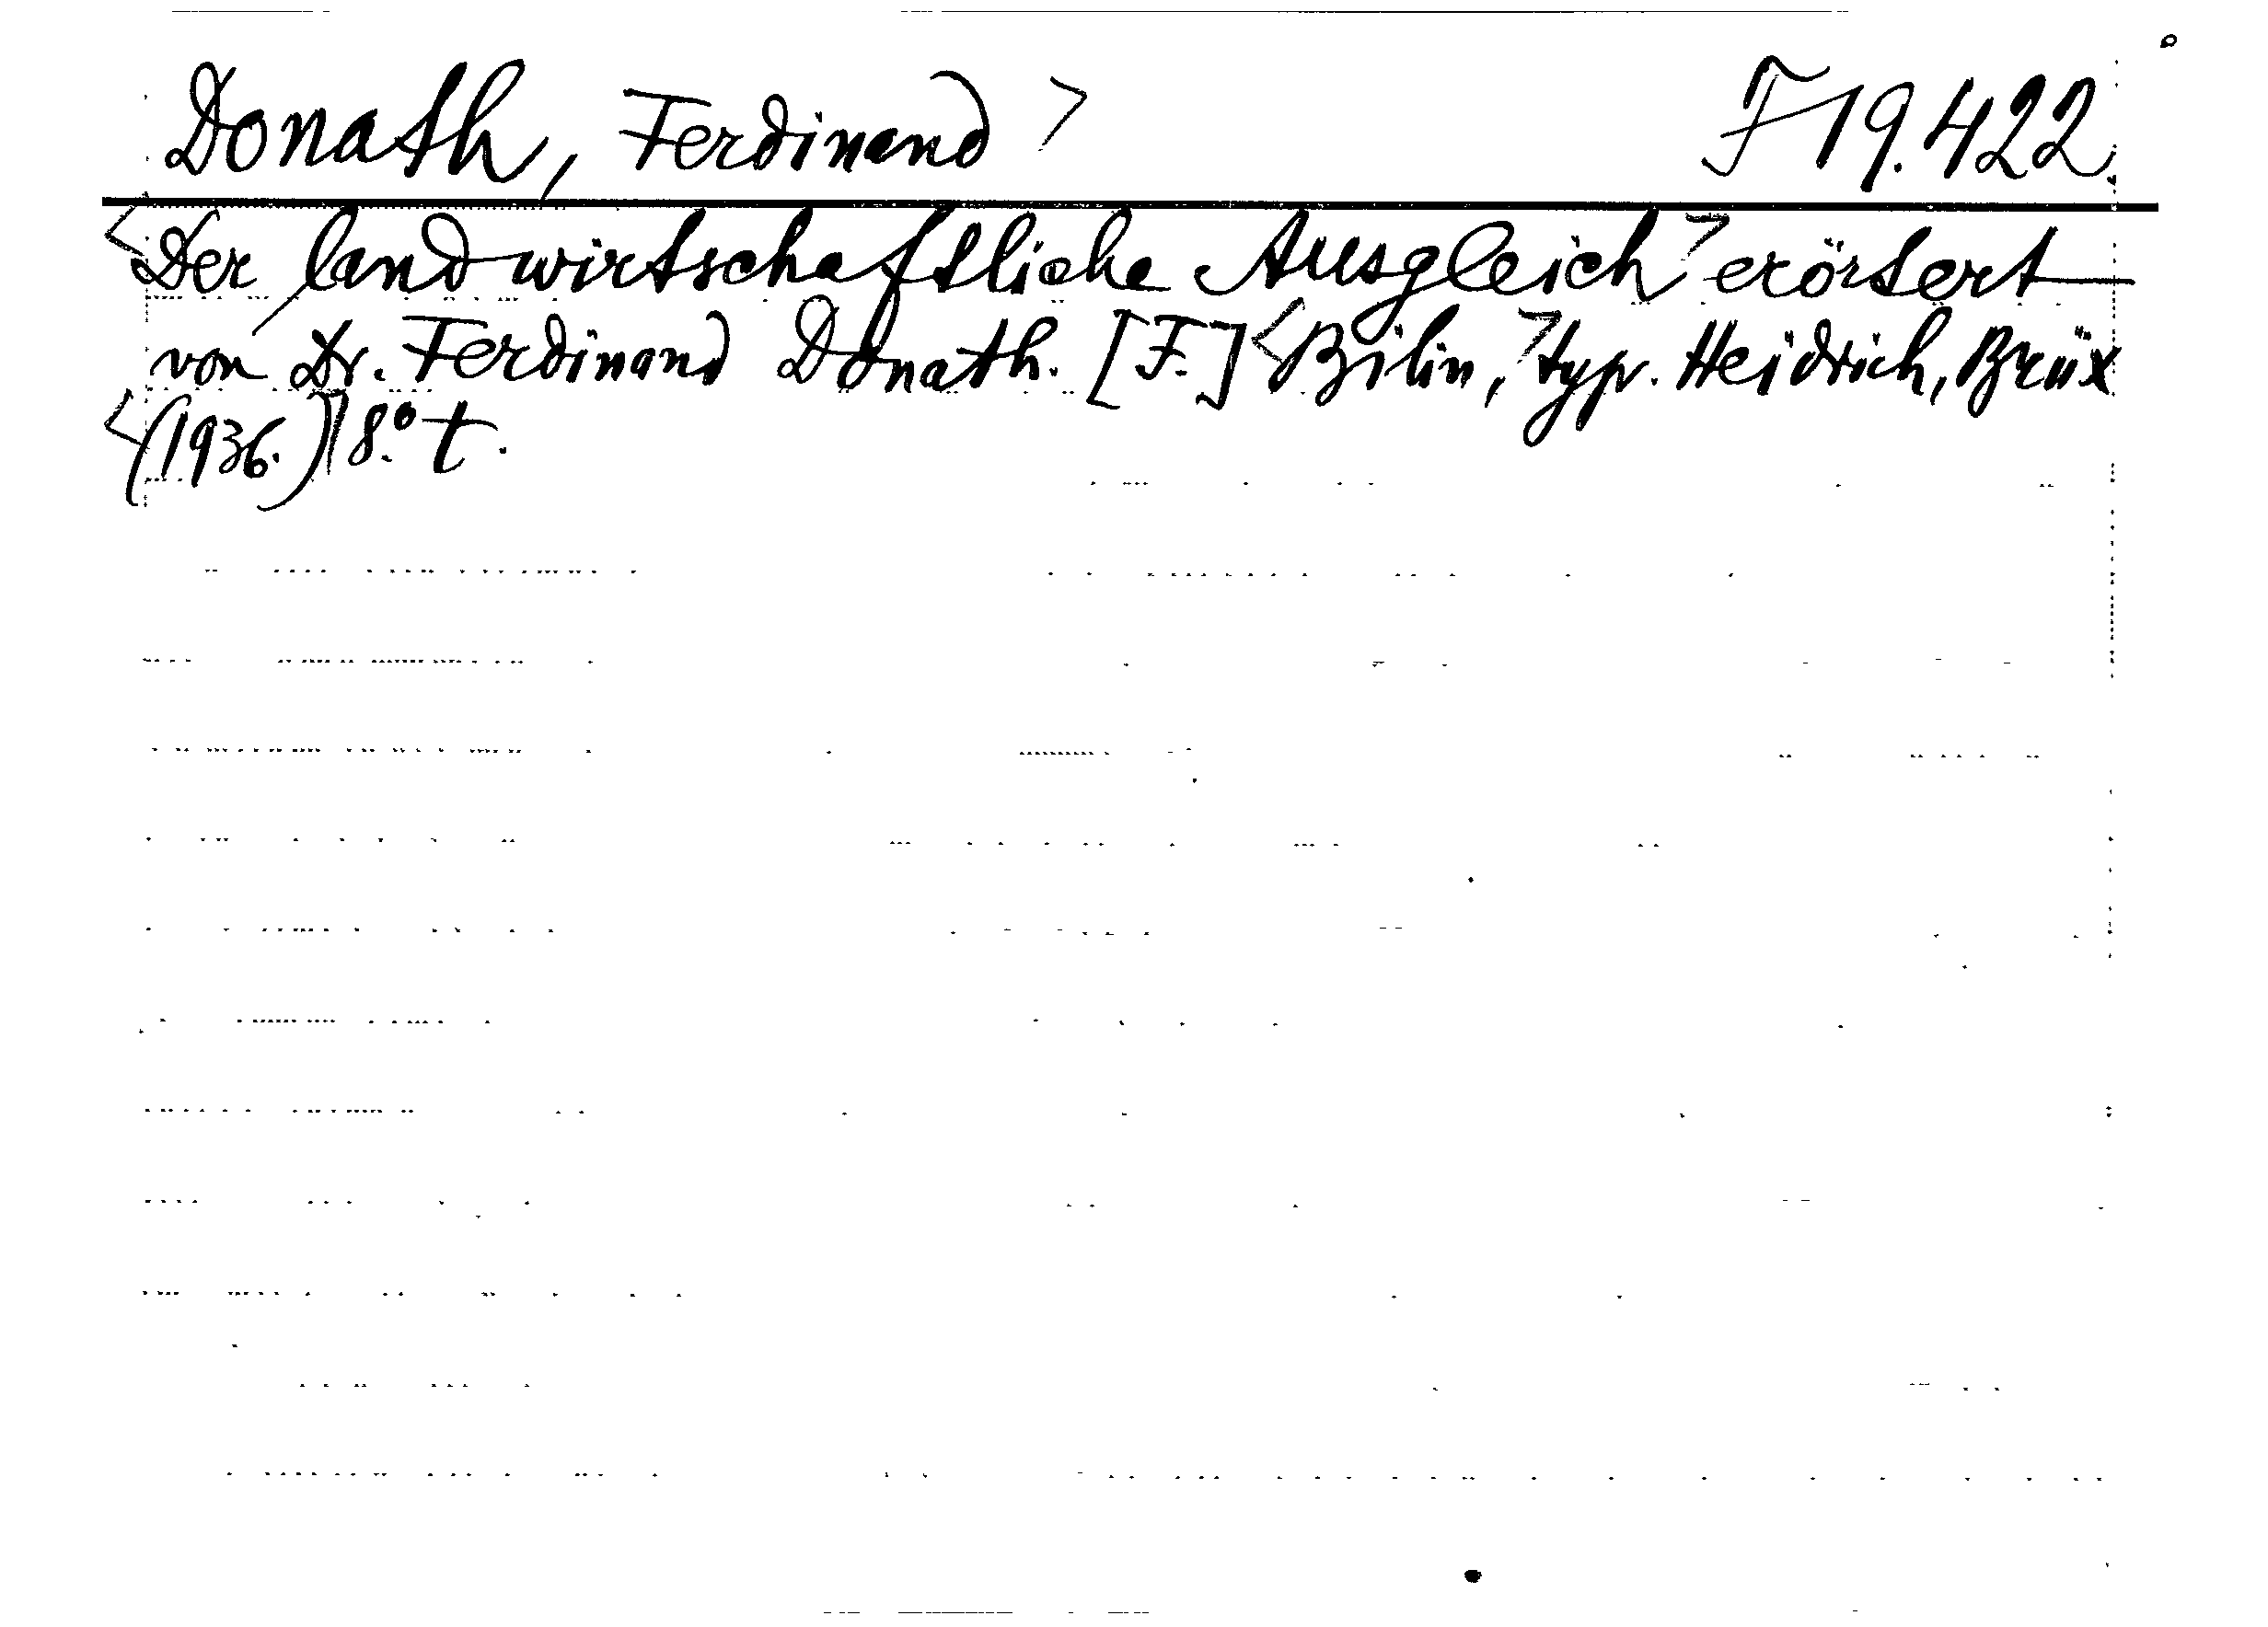 Donath, Ferdinand > F 19.422
<Der landwirtschaftliche Ausgleich> erörtert
von Dr. Ferdinand Donath. [F.] <Bilin,> typ. Heidrich, Brüx
<(1936.) 8° t.